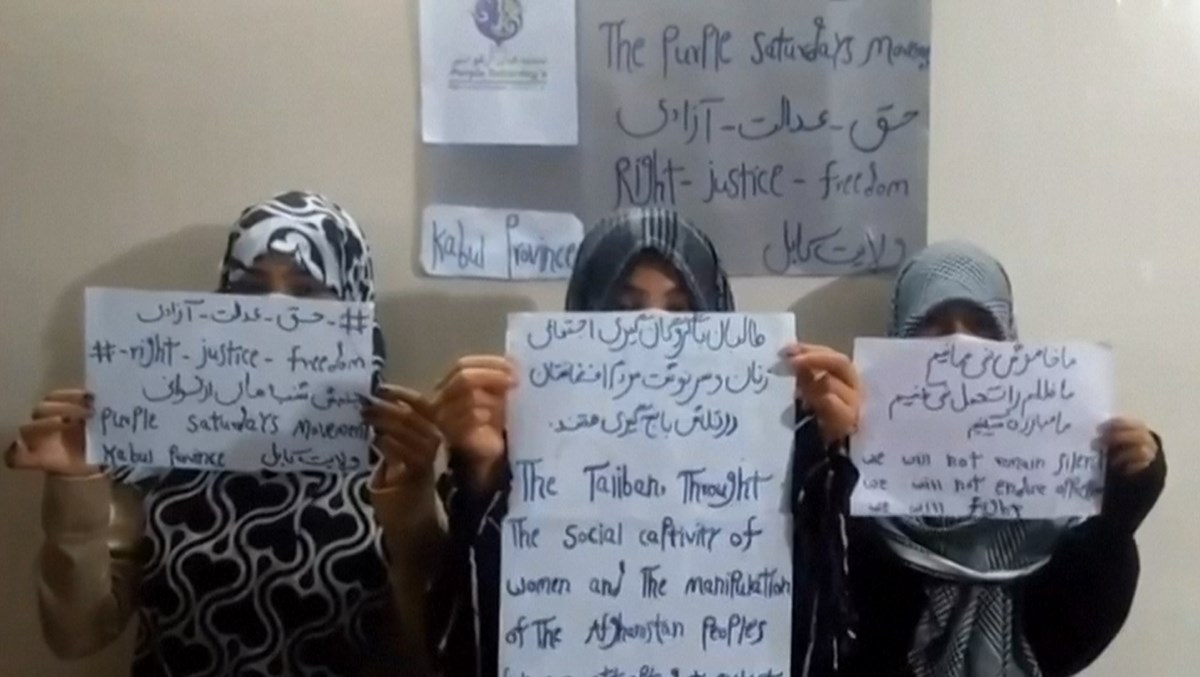 The Purple Saturdays
حق - عدالت - آزادی
Right - justice - freedom
ولایت کابل
Purple Saturday's
Kabul Province
# - حق - عدالت - آزادی
# - right - justice - freedom
جنبش شنبه های ارغوانی
Purple Saturdays Movement
Kabul Province ولایت کابل
طالبان با گروگان گیری اجتماعی
زنان و سرنوشت مردم افغانستان
در تلاش باج گیری هستند.
The Taliban, Throught
The Social captivity of
women and The manipulation
of The Afghanistan Peoples
ما خاموش نمی مانیم
ما ظلم را تحمل نمی کنیم
ما مبارزه میکنیم
we will not remain silent
we will not endure
we will fight